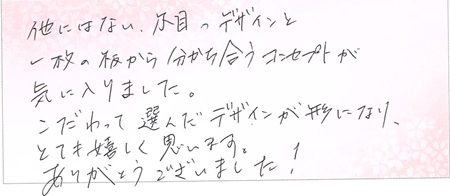 他にはない、木目のデザインと
一枚の板から分かち合うコンセプトが
気に入りました。
こだわって選んだデザインが形になり、
とても嬉しく思います。
ありがとうございました！